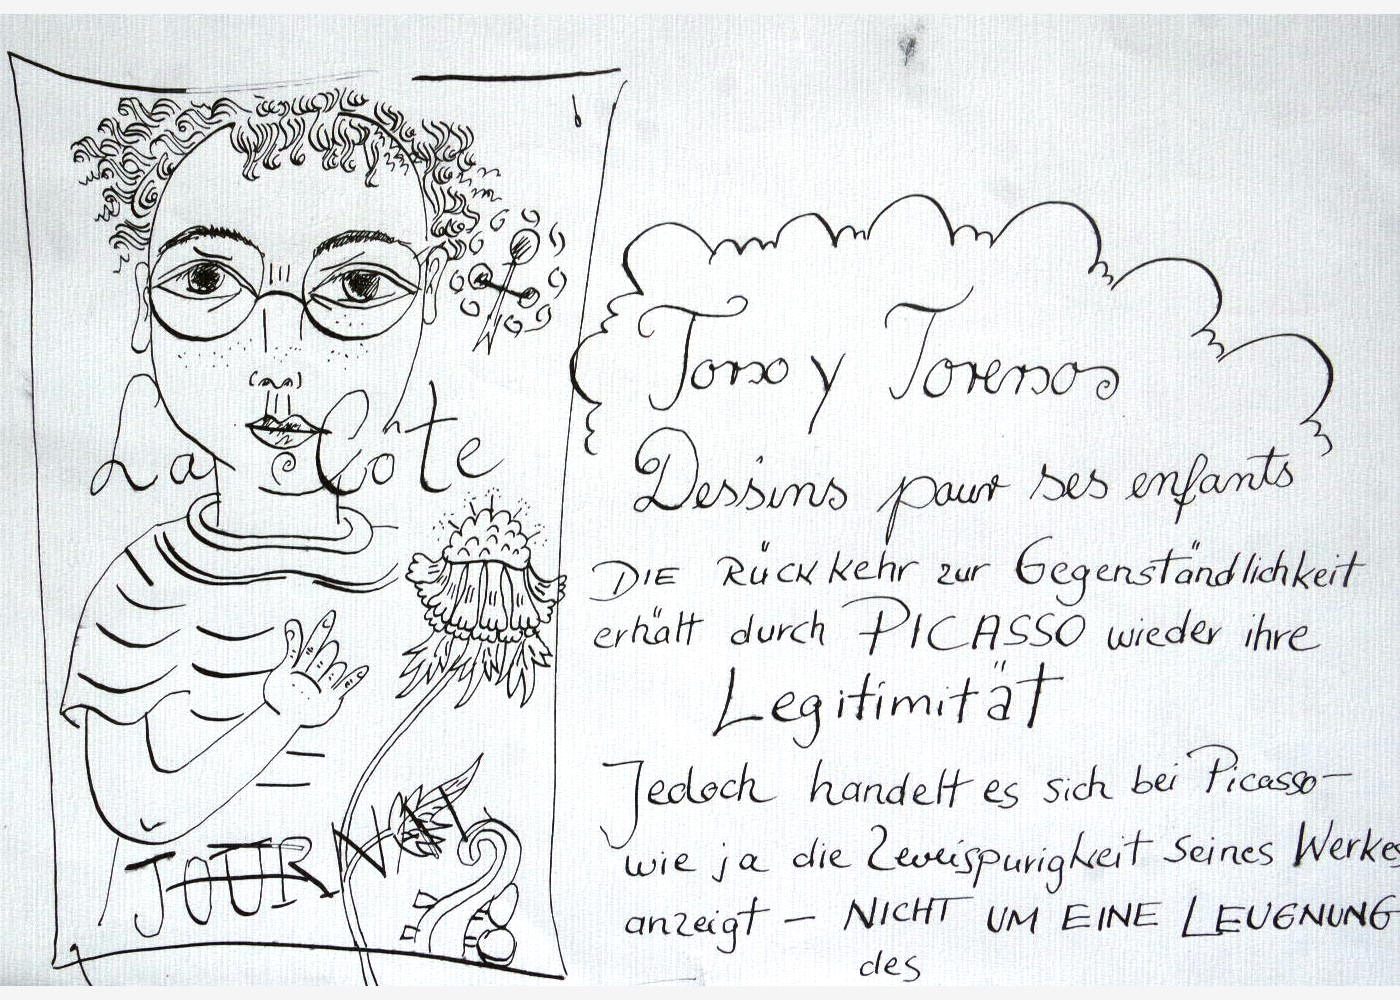 La Cote
JOURNAL
Torso y Torensos
Dessins pour ses enfants
DIE RÜCKkehr zur Gegenständlichkeit
erhält durch PICASSO wieder ihre
Legitimität
Jedoch handelt es sich bei Picasso—
wie ja die Zweispurigkeit seines Werkes
anzeigt — NICHT UM EINE LEUGNUNG
des